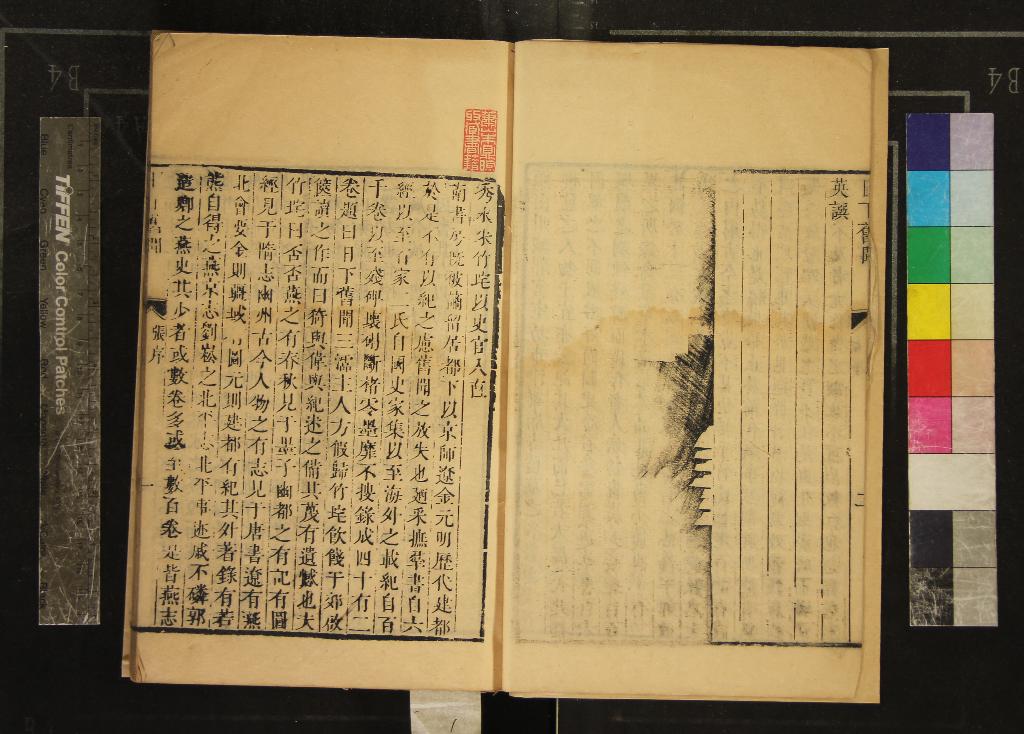 英譔
秀水朱竹垞以史官入直
南書房旣被謫留居都下以京師遼金元明歷代建都
於是不有以紀之慮舊聞之放失也廼采摭羣書自六
經以至百家二氏自國史家集以至海外之載紀自百
千卷以至殘碑壞碣斷楮零墨靡不搜錄成四十有二
卷題曰日下舊聞三濡主人方假歸竹垞飲餞于郊攽
篋讀之作而曰猗與偉與紀述之備其蔑有遺憾也夫
竹垞曰否否燕之有春秋見于墨子幽都之有記有圖
經見于隋志幽州古今人物之有志見于唐書遼有燕
北會要金則疆域有圖元則建都有紀其外著錄有若
熊自得之燕京志劉崧之北平志北平事迹戚不磷郭
造卿之燕史其少者或數卷多或至數百卷是皆燕志
日下舊聞
張序
一
日下舊聞
二
B4
B4
TIFFEN Color Control Patches
Blue
Cyan
Green
Yellow
Red
Centimetres